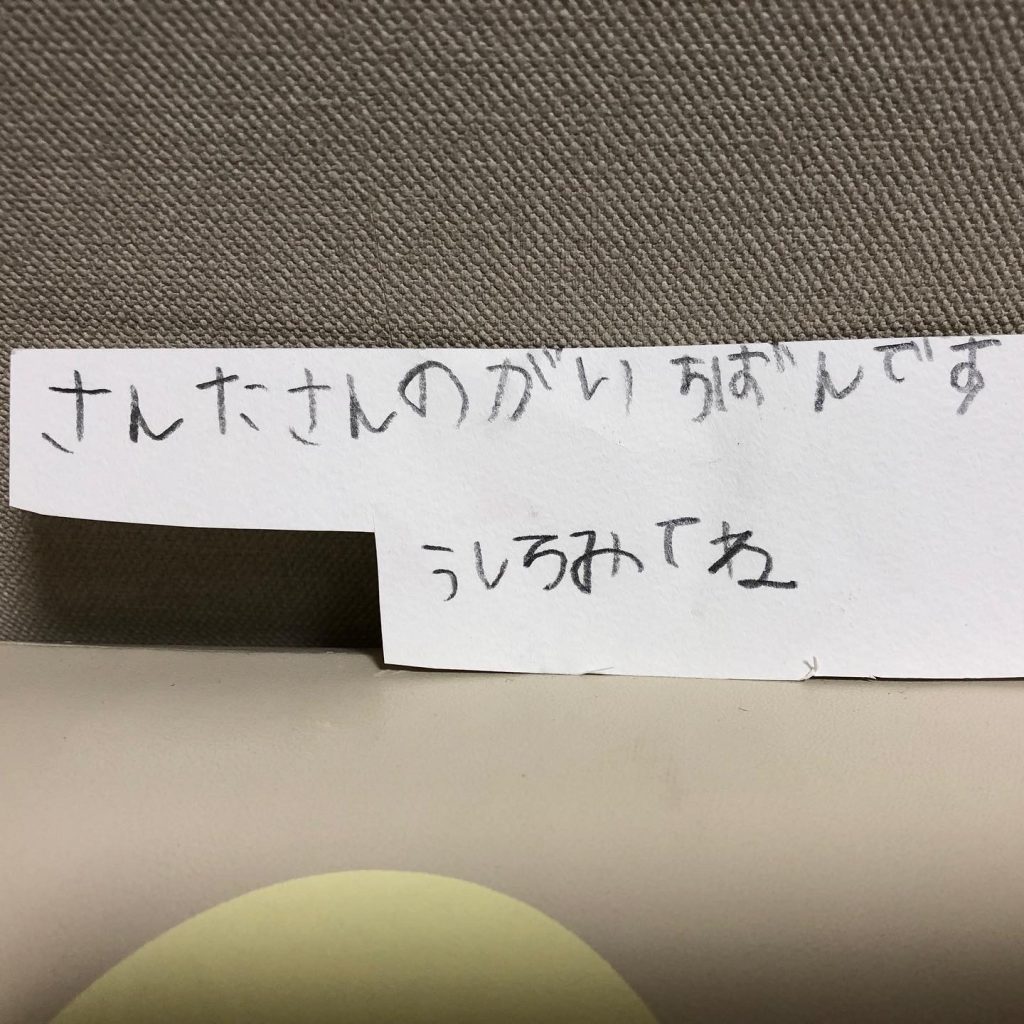 さんたさんのがいちばんです
うしろみてね